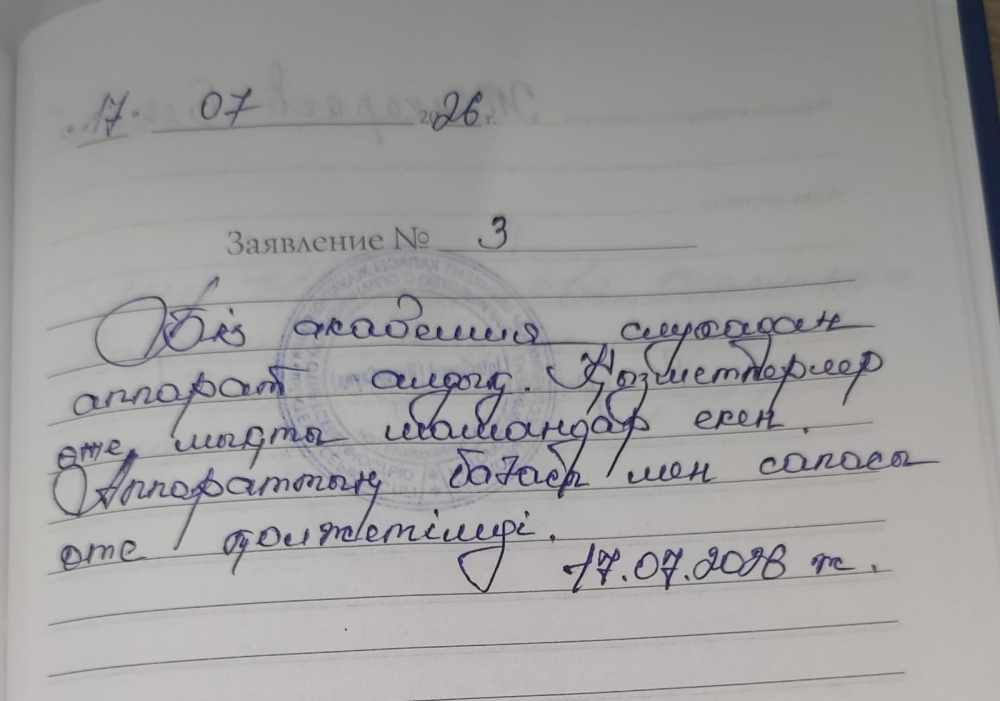 17. 07 2026 г.
Заявление № 3
Біз академия слухадан
аппарат алдық. Қызметкерлер
өте мықты мамандар екен.
Аппараттың бағасы мен сапасы
өте қолжетімді.
17.07.2026 ж.